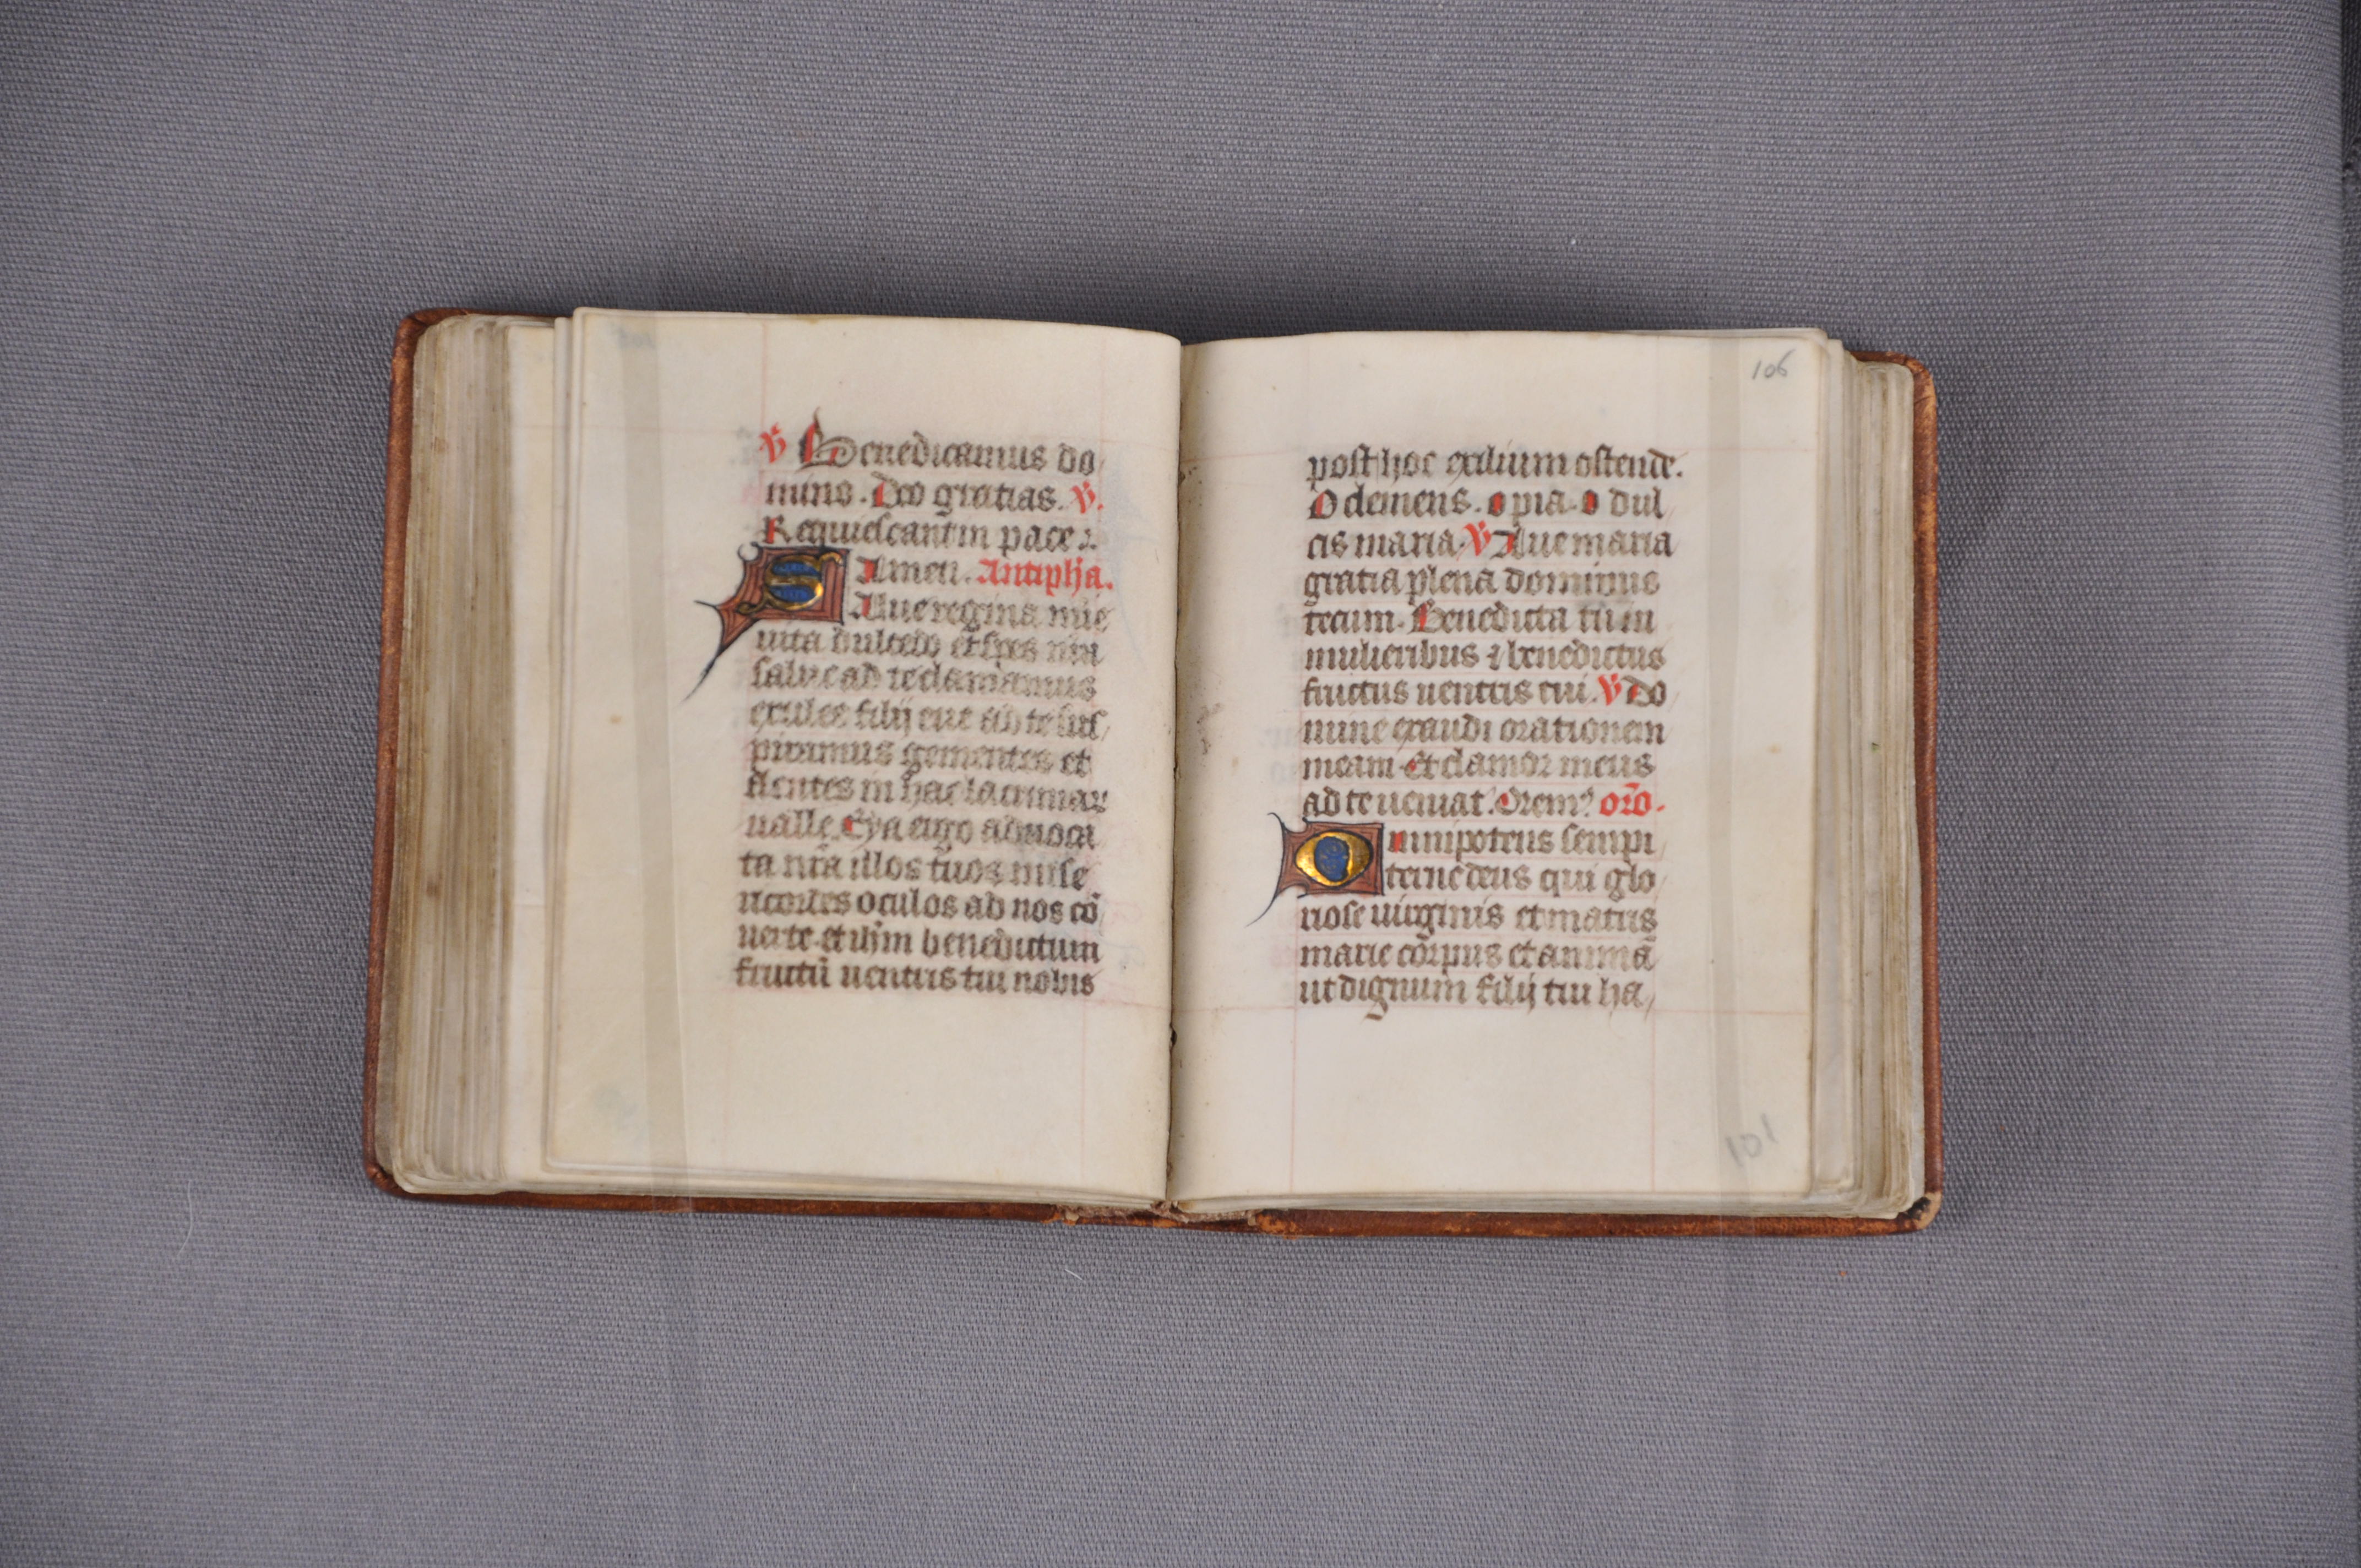 v̄ Benedicamus do
mino. Deo gratias. v̄.
Requiescant in pace.
Amen. Antipha.
SAlue regina mie
uita dulcedo et spes nra
salue ad te clamamus
exules filij eue ad te sus
piramus gementes et
flentes in hac lacrimar
ualle. Eya ergo aduoca
ta nr̄a illos tuos mise
ricordes oculos ad nos cō
uerte et ihm benedictum
fructū uentris tui nobis
106
post hoc exilium ostende.
O clemens. o pia. o dul
cis maria. v̄ Aue maria
gratia plena dominus
tecum. Benedicta tu in
mulieribus ⁊ benedictus
fructus uentris tui. v̄ Do
mine exaudi orationem
meam. Et clamor meus
ad te ueniat. Orem⁹ orō.
Omnipotens sempi
terne deus qui glo
riose uirginis et matris
marie corpus et animā
ut dignum filij tui ha
101